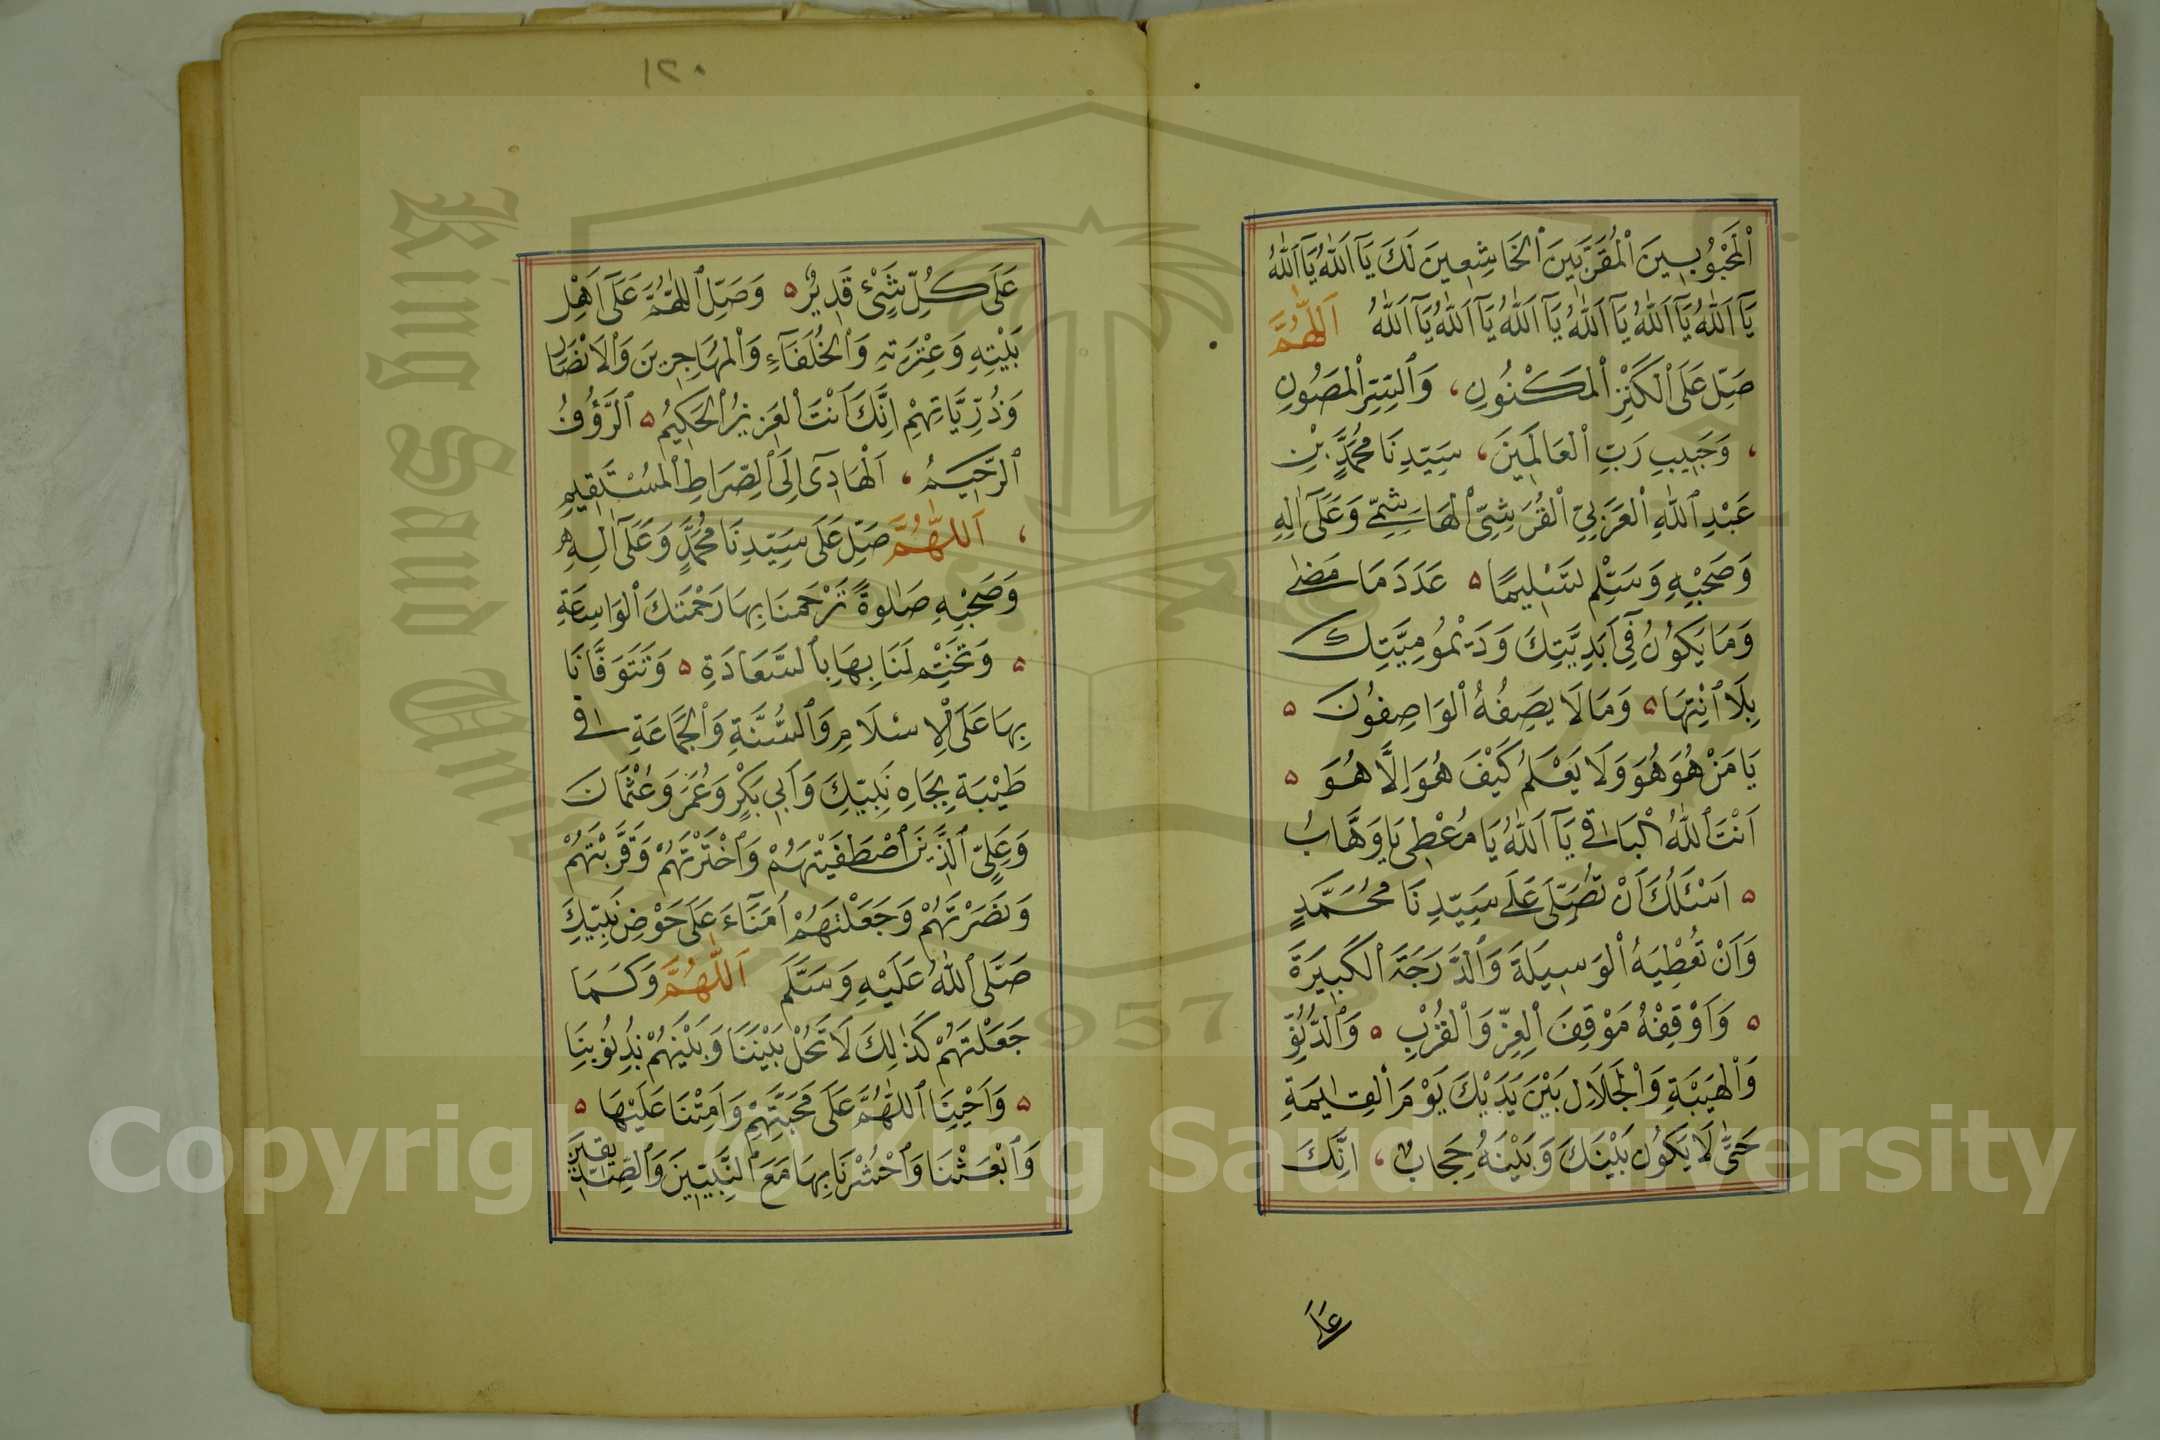 اَلْمَحْبُوبِينَ اَلْمُقَرَّبِينَ اَلْخَاشِعِينَ لَكَ يَآ اَللّٰهُ يَآ اَللّٰهُ
يَآ اَللّٰهُ يَآ اَللّٰهُ يَآ اَللّٰهُ يَآ اَللّٰهُ يَآ اَللّٰهُ يَآ اَللّٰهُ اَللّٰهُمَّ
صَلِّ عَلَى الْكَنْزِ الْمَكْنُونِ، وَالسِّرِّ الْمَصُونِ
، وَحَبِيبِ رَبِّ الْعَالَمِينَ، سَيِّدِنَا مُحَمَّدِ بْنِ
عَبْدِ اللّٰهِ الْعَرَبِيِّ الْقُرَشِيِّ الْهَاشِمِيِّ وَعَلَى آلِهِ
وَصَحْبِهِ وَسَلِّمْ تَسْلِيمًا ۵ عَدَدَ مَا مَضٰى
وَمَا يَكُونُ فِي أَبَدِيَّتِكَ وَدَيْمُومِيَّتِكَ
بِلَا انْتِهَا ۵ وَمَا لَا يَصِفُهُ الْوَاصِفُونَ ۵
يَا مَنْ هُوَ هُوَ وَلَا يَعْلَمُ كَيْفَ هُوَ اِلَّا هُوَ ۵
اَنْتَ اللّٰهُ الْبَاقِي يَآ اَللّٰهُ يَا مُعْطِي يَا وَهَّابُ
۵ اَسْئَلُكَ اَنْ تُصَلِّيَ عَلَى سَيِّدِنَا مُحَمَّدٍ
وَاَنْ تُعْطِيَهُ الْوَسِيلَةَ وَالدَّرَجَةَ الْكَبِيرَةَ
۵ وَاَوْقِفْهُ مَوْقِفَ الْعِزِّ وَالْقُرْبِ ۵ وَالدُّنُوِّ
وَالْهَيْبَةِ وَالْجَلَالِ بَيْنَ يَدَيْكَ يَوْمَ الْقِيٰمَةِ
حَتَّى لَا يَكُونُ بَيْنَكَ وَبَيْنَهُ حِجَابٌ، اِنَّكَ
عَلَى
١٢٠
عَلَى كُلِّ شَيْءٍ قَدِيرٌ ۵ وَصَلِّ اللّٰهُمَّ عَلَى اَهْلِ
بَيْتِهِ وَعِتْرَتِهِ وَالْخُلَفَآءِ وَالْمُهَاجِرِينَ وَالْاَنْصَارِ
وَذُرِّيَّاتِهِمْ اِنَّكَ اَنْتَ الْعَزِيزُ الْحَكِيمُ ۵ اَلرَّؤُفُ
الرَّحِيمُ، اَلْهَادِي اِلَى الصِّرَاطِ الْمُسْتَقِيمِ
، اَللّٰهُمَّ صَلِّ عَلَى سَيِّدِنَا مُحَمَّدٍ وَعَلَى آلِهِ
وَصَحْبِهِ صَلٰوةً تَرْحَمنَا بِهَا رَحْمَتَكَ الْوَاسِعَةِ
۵ وَتَخْتِمْ لَنَا بِهَا بِالسَّعَادَةِ ۵ وَتَتَوَفَّانَا
بِهَا عَلَى الْاِسْلَامِ وَالسُّنَّةِ وَالْجَمَاعَةِ فِي
طَيْبَة بِجَاهِ نَبِيِّكَ وَاَبِي بَكْرٍ وَعُمَرَ وَعُثْمَانَ
وَعَلِيٍّ الَّذِينَ اصْطَفَيْتَهُمْ وَاخْتَرْتَهُمْ وَقَرَّبْتَهُمْ
وَنَصَرْتَهُمْ وَجَعَلْتَهُمْ اُمَنَآءَ عَلَى حَوْضِ نَبِيِّكَ
صَلَّى اللّٰهُ عَلَيْهِ وَسَلَّمَ اَللّٰهُمَّ وَكَمَا
جَعَلْتَهُمْ كَذٰلِكَ لَا تَحُلْ بَيْنَنَا وَبَيْنَهُمْ بِذُنُوبِنَا
۵ وَاَحْيِنَا اللّٰهُمَّ عَلَى مَحَبَّتِهِمْ وَاَمِتْنَا عَلَيْهَا ۵
وَابْعَثْنَا وَاحْشُرْنَا بِهَا مَعَ النَّبِيِّينَ وَالصِّدِّيقِينَ
King Saud University
1957
Copyright © King Saud University